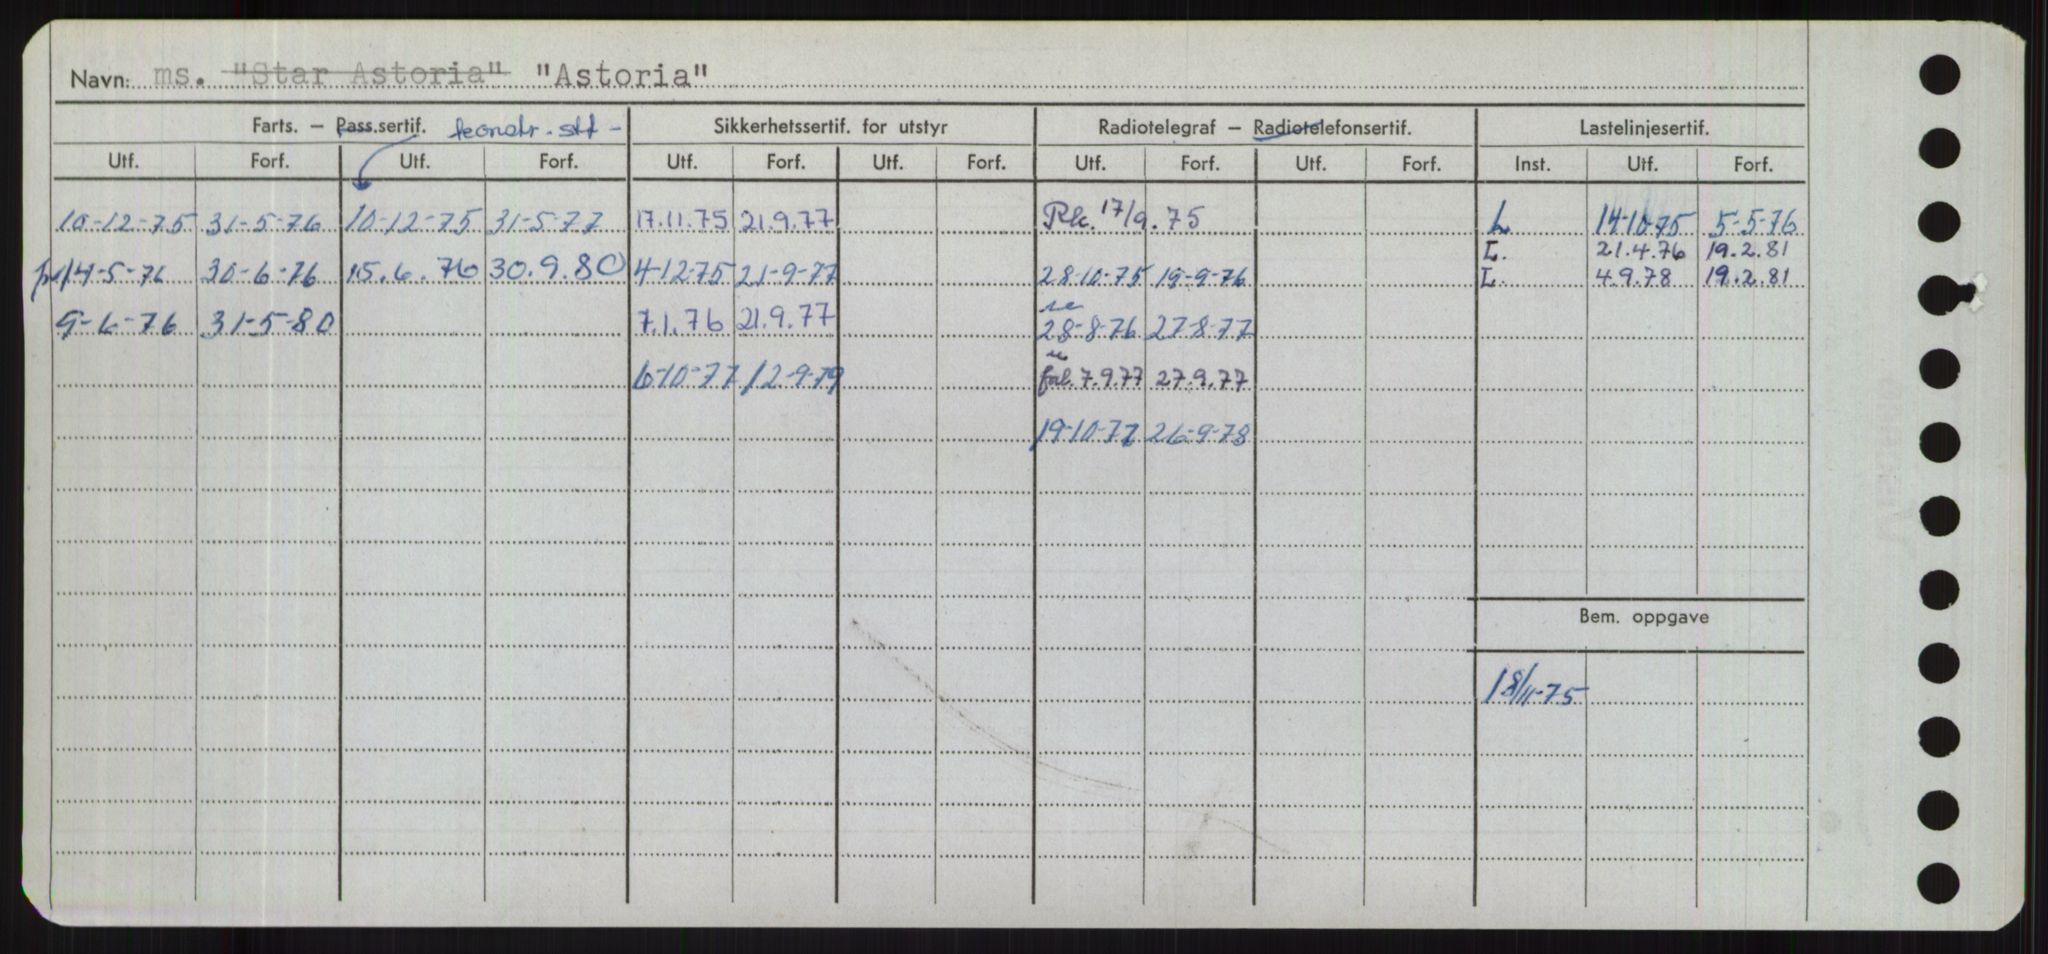 Navn: ms. "Star Astoria" "Astoria"
Farts. – Pass.sertif. konstr. stf - Sikkerhetssertif. for utstyr Radiotelegraf – Radiotelefonsertif. Lastelinjesertif.
Utf. Forf. Utf. Forf. Utf. Forf. Utf. Forf. Utf. Forf. Utf. Forf. Inst. Utf. Forf.
10-12-75 31-5-76 10-12-75 31-5-77 17.11.75 21.9.77 Rk. 17/9.75 L 14-10-75 5-5-76
L. 21.4.76 19.2.81
14-5-76 30-6-76 15.6.76 30.9.80 4-12-75 21-9-77 28-10-75 19-9-76 L. 4.9.78 19.2.81
9-6-76 31-5-80 7.1.76 21.9.77 28-8-76 27-8-77
6-10-77 12-9-79 7.9.77 27.9.77
19-10-77 26-9-78
Bem. oppgave
18/11-75